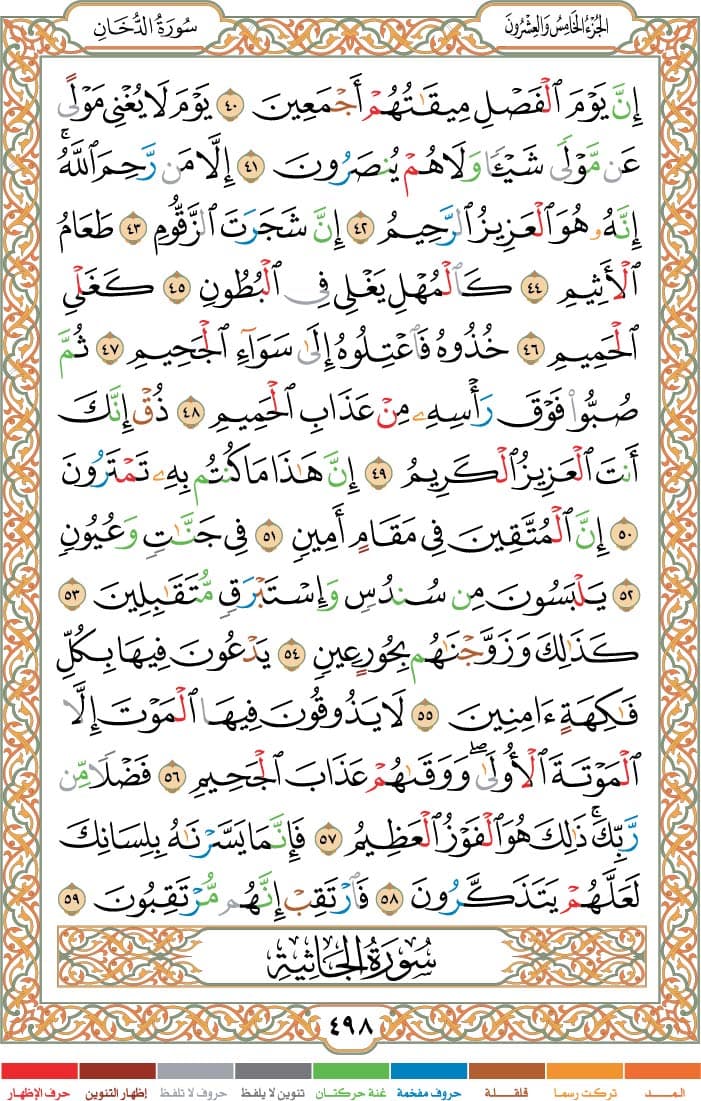 الجزء الخامس والعشرون
سورة الدخان
إِنَّ يَوْمَ ٱلْفَصْلِ مِيقَٰتُهُمْ أَجْمَعِينَ ٤٠ يَوْمَ لَا يُغْنِى مَوْلًى
عَن مَّوْلًى شَيْـًٔا وَلَا هُمْ يُنصَرُونَ ٤١ إِلَّا مَن رَّحِمَ ٱللَّهُ ۚ
إِنَّهُۥ هُوَ ٱلْعَزِيزُ ٱلرَّحِيمُ ٤٢ إِنَّ شَجَرَتَ ٱلزَّقُّومِ ٤٣ طَعَامُ
ٱلْأَثِيمِ ٤٤ كَٱلْمُهْلِ يَغْلِى فِى ٱلْبُطُونِ ٤٥ كَغَلْىِ
ٱلْحَمِيمِ ٤٦ خُذُوهُ فَٱعْتِلُوهُ إِلَىٰ سَوَآءِ ٱلْجَحِيمِ ٤٧ ثُمَّ
صُبُّوا۟ فَوْقَ رَأْسِهِۦ مِنْ عَذَابِ ٱلْحَمِيمِ ٤٨ ذُقْ إِنَّكَ
أَنتَ ٱلْعَزِيزُ ٱلْكَرِيمُ ٤٩ إِنَّ هَٰذَا مَا كُنتُم بِهِۦ تَمْتَرُونَ
٥٠ إِنَّ ٱلْمُتَّقِينَ فِى مَقَامٍ أَمِينٍ ٥١ فِى جَنَّٰتٍ وَعُيُونٍ
٥٢ يَلْبَسُونَ مِن سُندُسٍ وَإِسْتَبْرَقٍ مُّتَقَٰبِلِينَ ٥٣
كَذَٰلِكَ وَزَوَّجْنَٰهُم بِحُورٍ عِينٍ ٥٤ يَدْعُونَ فِيهَا بِكُلِّ
فَٰكِهَةٍ ءَامِنِينَ ٥٥ لَا يَذُوقُونَ فِيهَا ٱلْمَوْتَ إِلَّا
ٱلْمَوْتَةَ ٱلْأُولَىٰ ۖ وَوَقَىٰهُمْ عَذَابَ ٱلْجَحِيمِ ٥٦ فَضْلًا مِّن
رَّبِّكَ ۚ ذَٰلِكَ هُوَ ٱلْفَوْزُ ٱلْعَظِيمُ ٥٧ فَإِنَّمَا يَسَّرْنَٰهُ بِلِسَانِكَ
لَعَلَّهُمْ يَتَذَكَّرُونَ ٥٨ فَٱرْتَقِبْ إِنَّهُم مُّرْتَقِبُونَ ٥٩
سورة الجاثية
٤٩٨
المــد تركت رسما قلقـلة حروف مفخمة غنة حركتان تنوين لا يلفظ حروف لا تلفظ إظهار التنوين حرف الإظهار